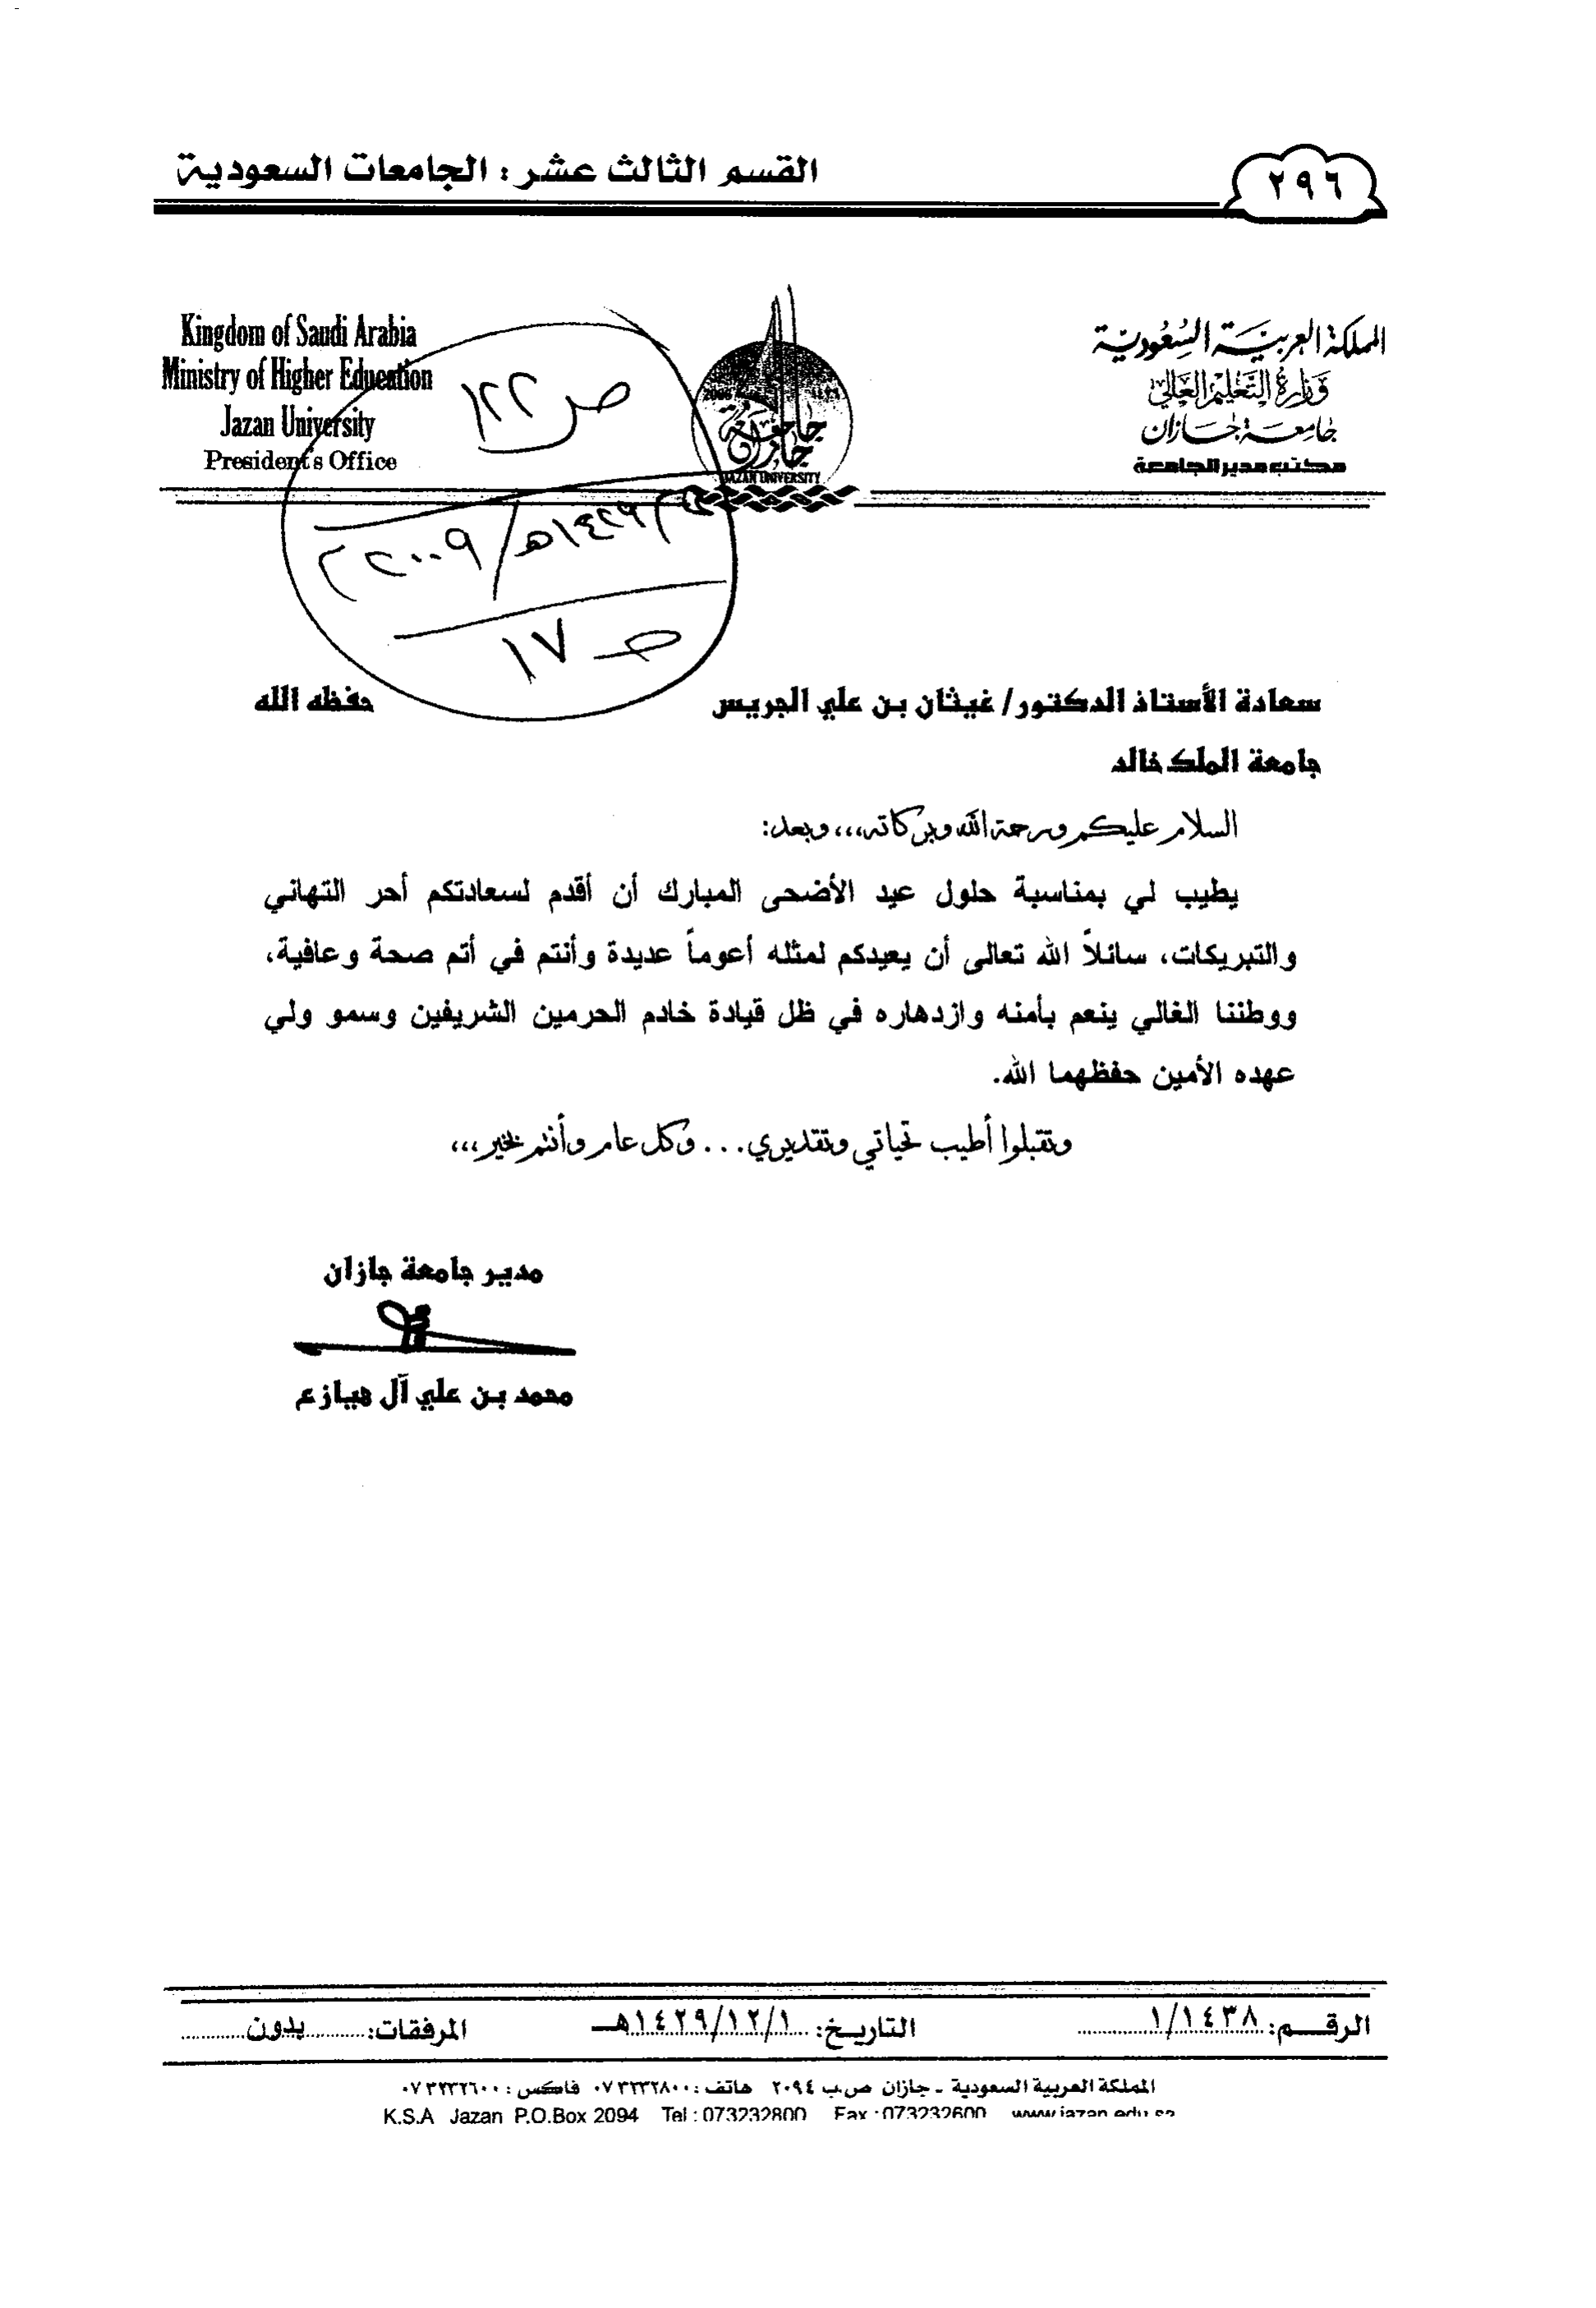 القسم الثالث عشر : الجامعات السعودية
٢٩٦
المملكة العربية السعودية
وزارة التعليم العالي
جامعة جازان
مكتب مدير الجامعة
Kingdom of Saudi Arabia
Ministry of Higher Education
Jazan University
President's Office
جامعة جازان
JAZAN UNIVERSITY
ص ١٢٢
١٤٢٩هـ / ٢٠٠٩م
ص ١٧
سعادة الأستاذ الدكتور/ غيثان بن علي الجريس حفظه الله
جامعة الملك خالد
السلام عليكم ورحمة الله وبركاته،،، وبعد:
يطيب لي بمناسبة حلول عيد الأضحى المبارك أن أقدم لسعادتكم أحر التهاني
والتبريكات، سائلاً الله تعالى أن يعيدكم لمثله أعوماً عديدة وأنتم في أتم صحة وعافية،
ووطننا الغالي ينعم بأمنه وازدهاره في ظل قيادة خادم الحرمين الشريفين وسمو ولي
عهده الأمين حفظهما الله.
وتقبلوا أطيب تحياتي وتقديري... وكل عام وأنتم بخير،،،
مدير جامعة جازان
محمد بن علي آل هيازع
الرقـــم: ١/١٤٣٨ التاريـخ: ١٤٢٩/١٢/١هـ المرفقات: بدون
المملكة العربية السعودية ـ جازان ص.ب ٢٠٩٤ هاتف : ٠٧٣٢٣٢٨٠٠ فاكس : ٠٧٣٢٣٢٦٠٠
K.S.A Jazan P.O.Box 2094 Tel : 073232800 Fax : 073232600 www.jazan.edu.sa